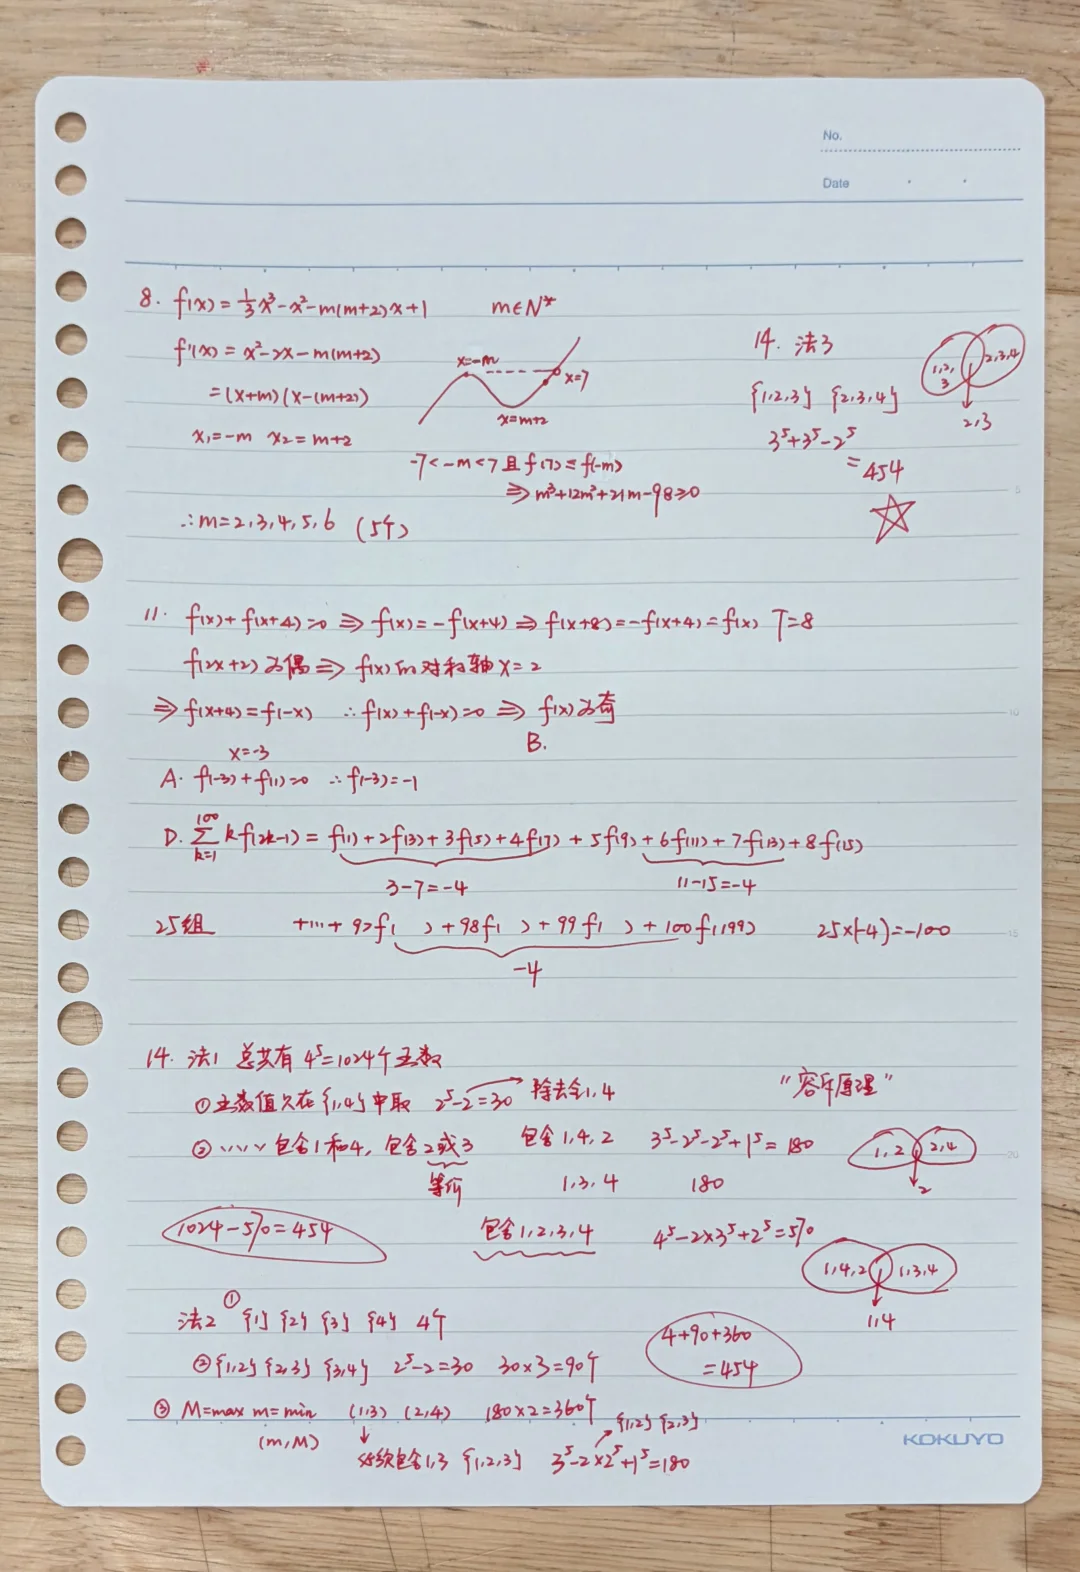 No.
Date
8. f(x) = 1/3x³-x²-m(m+2)x+1 m∈N*
f'(x) = x²-2x-m(m+2)
=(x+m)(x-(m+2))
x₁=-m x₂=m+2
x=-m
x=7
x=m+2
-7<-m<7且f(7)≥f(-m)
⇒m³+12m²+21m-98≥0
∴m=2,3,4,5,6 (5个)
14. 法3
{1,2,3} {2,3,4}
1,2,3
2,3,4
2,3
3⁵+3⁵-2⁵
=454
11. f(x)+f(x+4)=0 ⇒ f(x)=-f(x+4) ⇒ f(x+8)=-f(x+4)=f(x) T=8
f(2x+2)为偶⇒ f(x)的对称轴x=2
⇒f(x+4)=f(-x) ∴f(x)+f(-x)=0 ⇒ f(x)为奇
B.
x=-3
A. f(-3)+f(1)=0 ∴f(-3)=-1
D. ∑(k=1→100) kf(2k-1) = f(1)+2f(3)+3f(5)+4f(7)+5f(9)+6f(11)+7f(13)+8f(15)
3-7=-4
11-15=-4
25组 +…+97f( )+98f( )+99f( )+100f(199) 25×(-4)=-100
-4
14. 法1 总共有4⁵=1024个五数
①五数值只在{1,4}中取 2⁵-2=30 除去全1,4
"容斥原理"
②、、、、包含1和4,包含2或3 包含1,4,2 3⁵-2⁵-2⁵+1⁵=180
等价
1,3,4 180
1,2
2,4
2
1024-570=454
包含1,2,3,4 4⁵-2×3⁵+2⁵=570
1,4,2
1,3,4
1,4
法2 ①{1} {2} {3} {4} 4个
②{1,2} {2,3} {3,4} 2⁵-2=30 30×3=90个
4+90+360
=454
③ M=max m=min (1,3) (2,4) 180×2=360个
(m,M)
{1,2} {2,3}
必须包含1,3 {1,2,3} 3⁵-2×2⁵+1⁵=180
KOKUYO